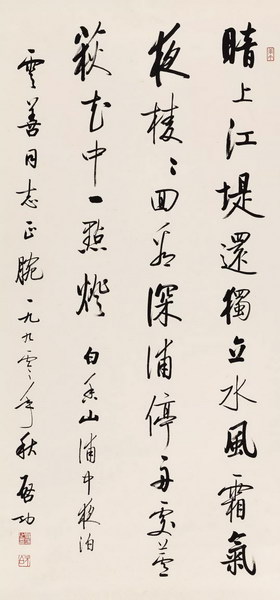 暗上江堤還獨立水風霜氣
夜棱〻回看深浦停舟處蘆
荻花中一點燈 白香山浦中夜泊
雲善同志正腕 一九九零年秋 啓功